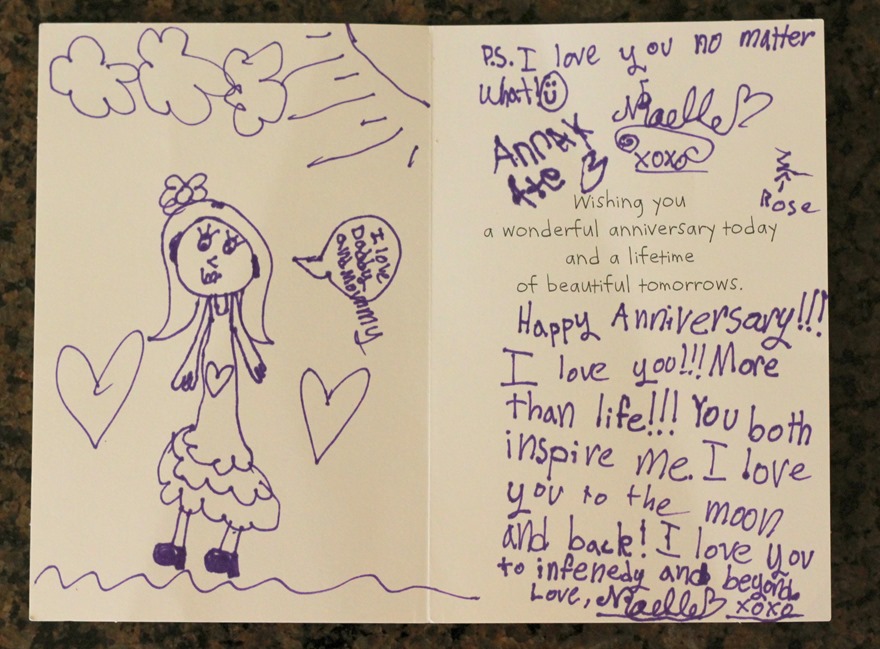 I love
Daddy
and Mommy
P.S. I love you no matter
What!
Maelle
xoxo
Rose
Wishing you
a wonderful anniversary today
and a lifetime
of beautiful tomorrows.
Happy Anniversary!!!
I love you!!! More
than life!!! You both
inspire me. I love
you to the moon
and back! I love you
to infenedy and beyond.
Love, Maelle
xoxo